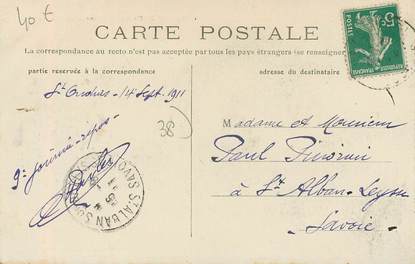 40 €
CARTE POSTALE
La correspondance au recto n'est pas acceptée par tous les pays étrangers (se renseigner
partie réservée à la correspondance
adresse du destinataire
5c
POSTES
14 Sept. 1911
38
9e journée - repos
Madame et Monsieur
Paul
à St Alban-Leysse
Savoie
ST ALBAN
SAVOIE